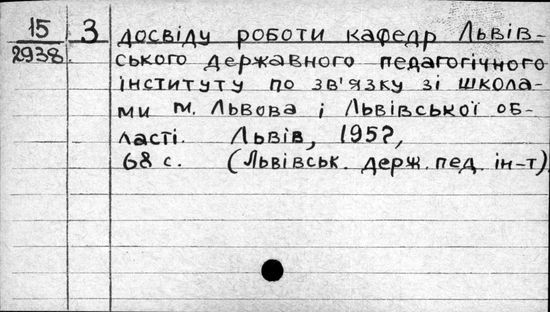 15 З досвіду роботи кафедр Львів-
2938. ського державного педагогічного
інституту по зв'язку зі школа-
ми м. Львова і Львівської об-
ласті. Львів, 195?,
68 с. (Львівськ. держ. пед. ін-т)